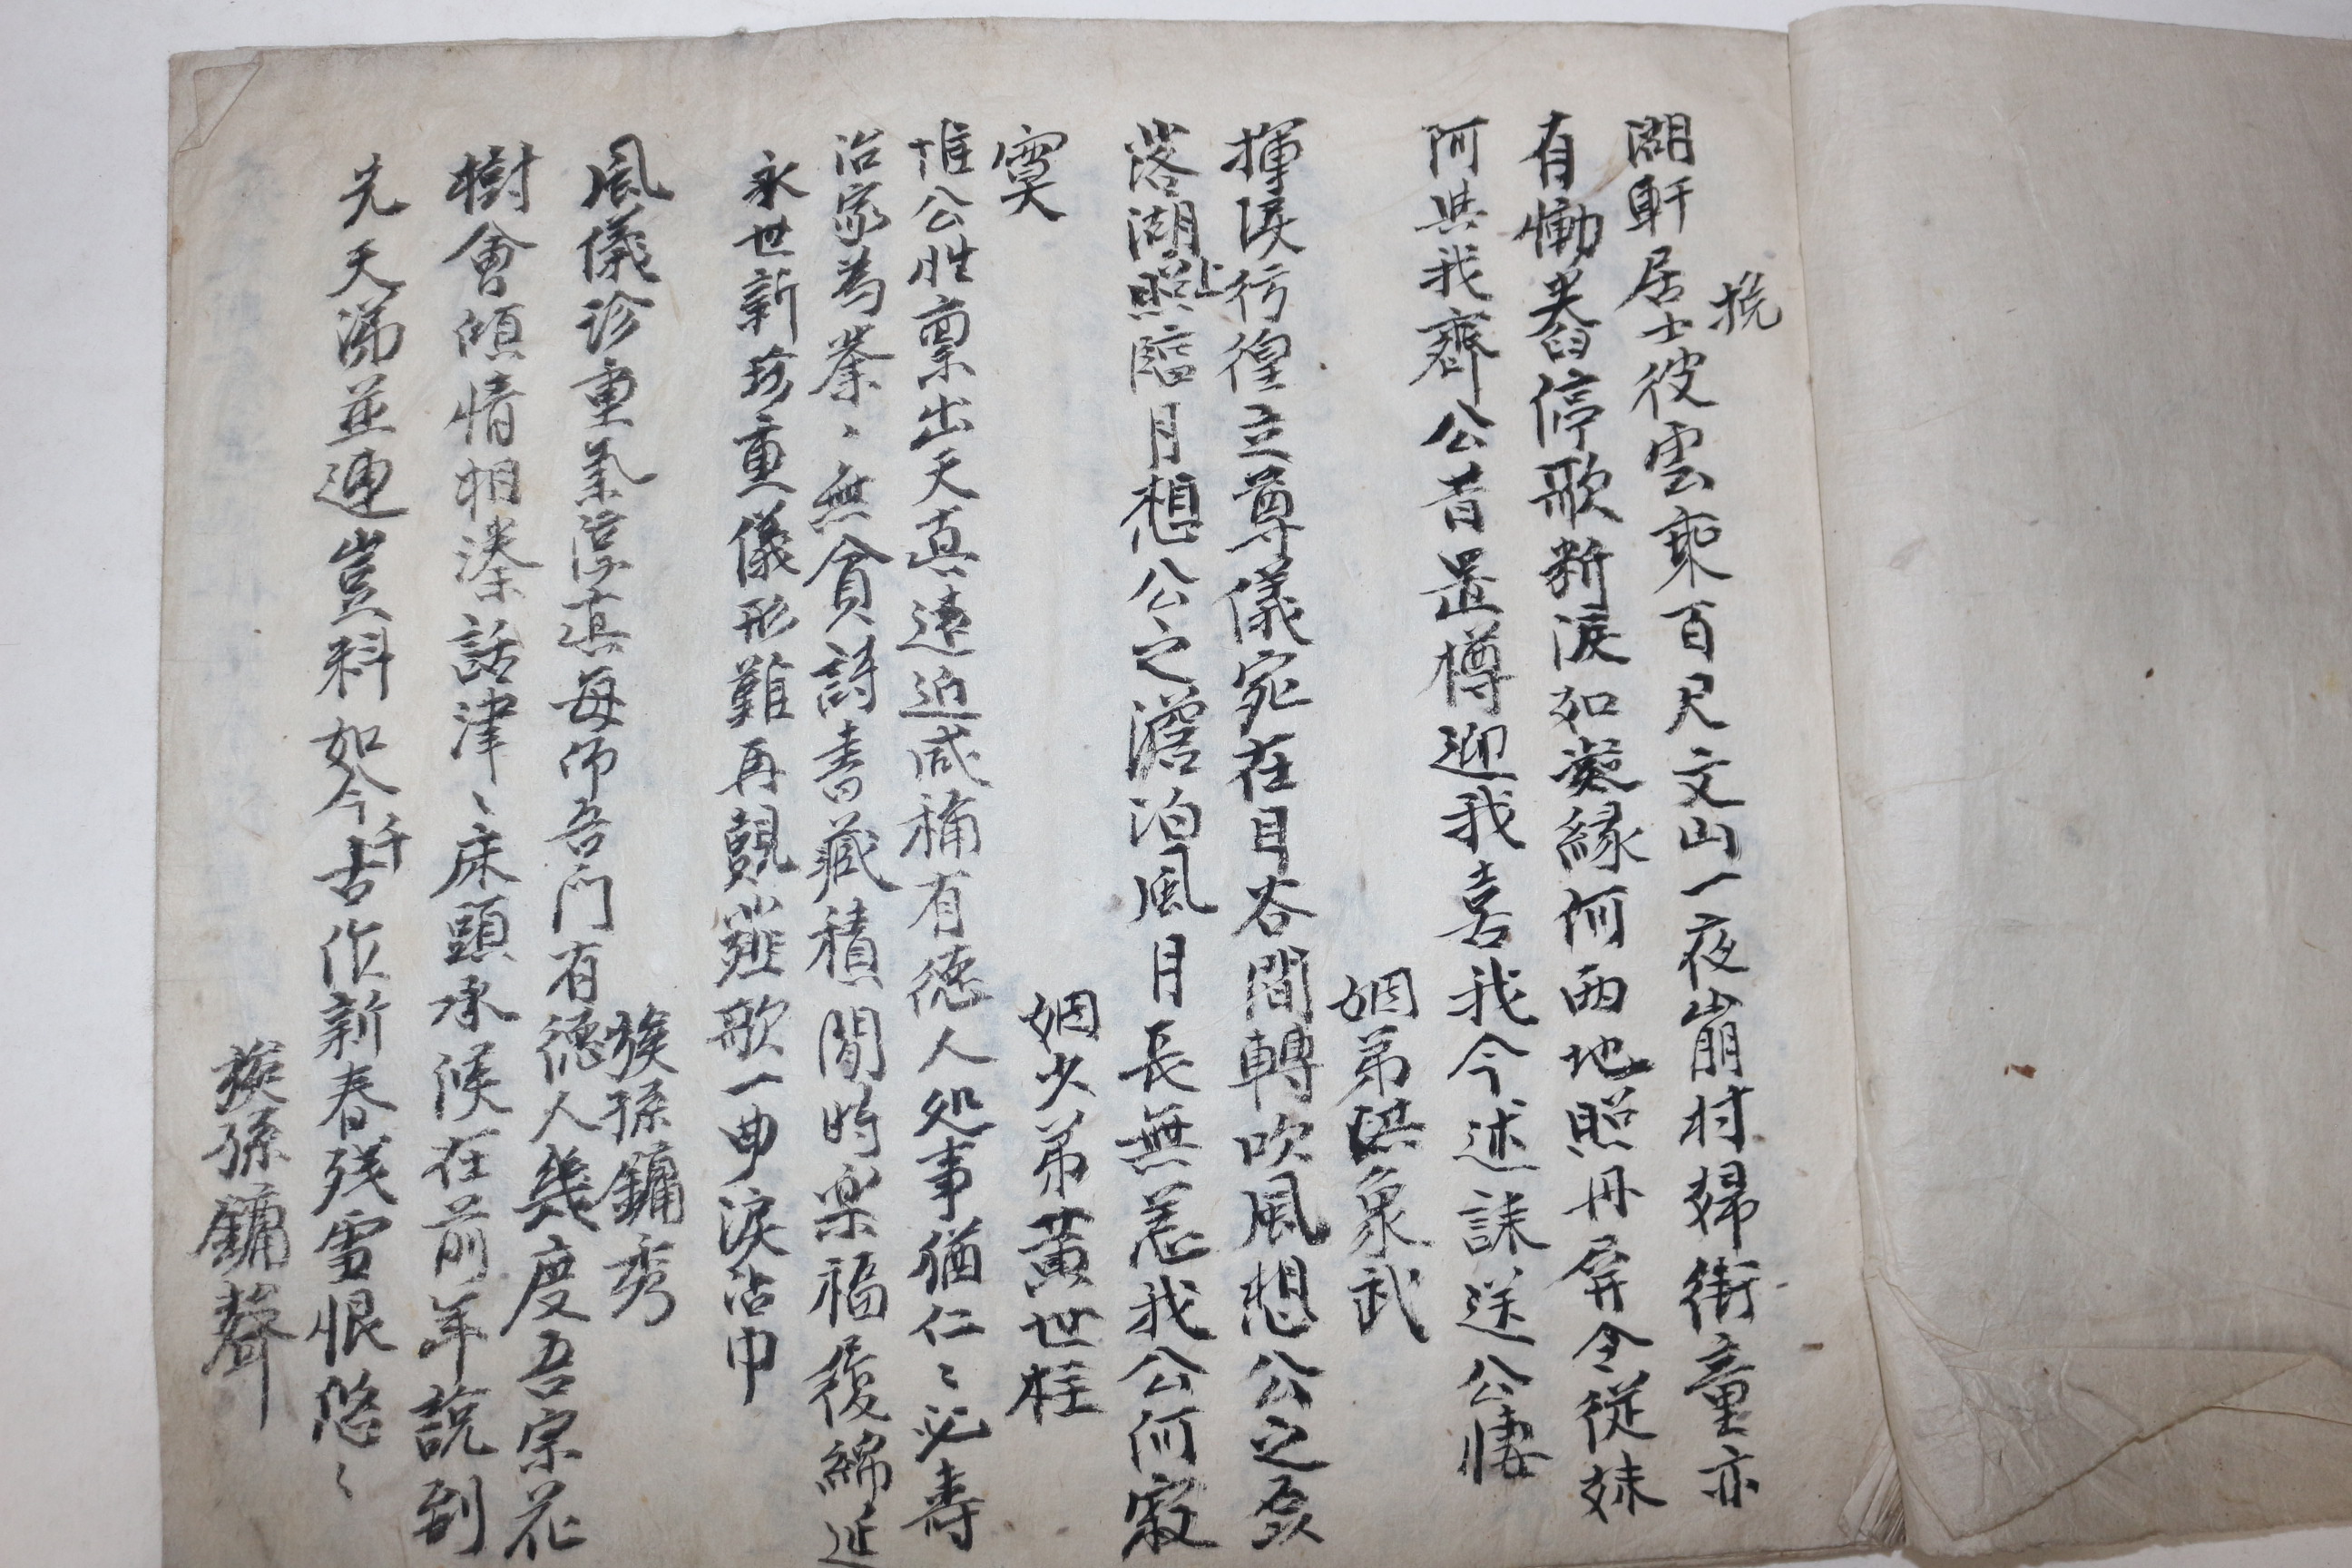 挽
湖軒居士彼雲乘百尺文山一夜崩村婦街童亦
有慟舂停歌斷淚如凝緣何兩地照丹屛令從妹
阿與我齊公昔置樽迎我喜我今述誄送公悽
姻弟洪象武
揮淚行徨立尊儀宛在目谷間轉吹風想公之磊
落湖上照臨月想公之澹泊風月長無恙我公何寂
寞
姻少弟黃世柱
惟公性稟出天眞遠迩咸稱有德人処事猶仁〻必壽
治家爲業〻無貧詩書藏積閒時楽福履綿延
永世新珍重儀形難再覿薤歌一曲淚沾巾
族孫鏞秀
風儀珍重氣淳眞每仰吾門有德人幾度吾宗花
樹會傾情相湊話津〻床頭承候在前年說到
先天涕並連豈料如今千古作新春殘雪恨悠〻
族孫鏞聲